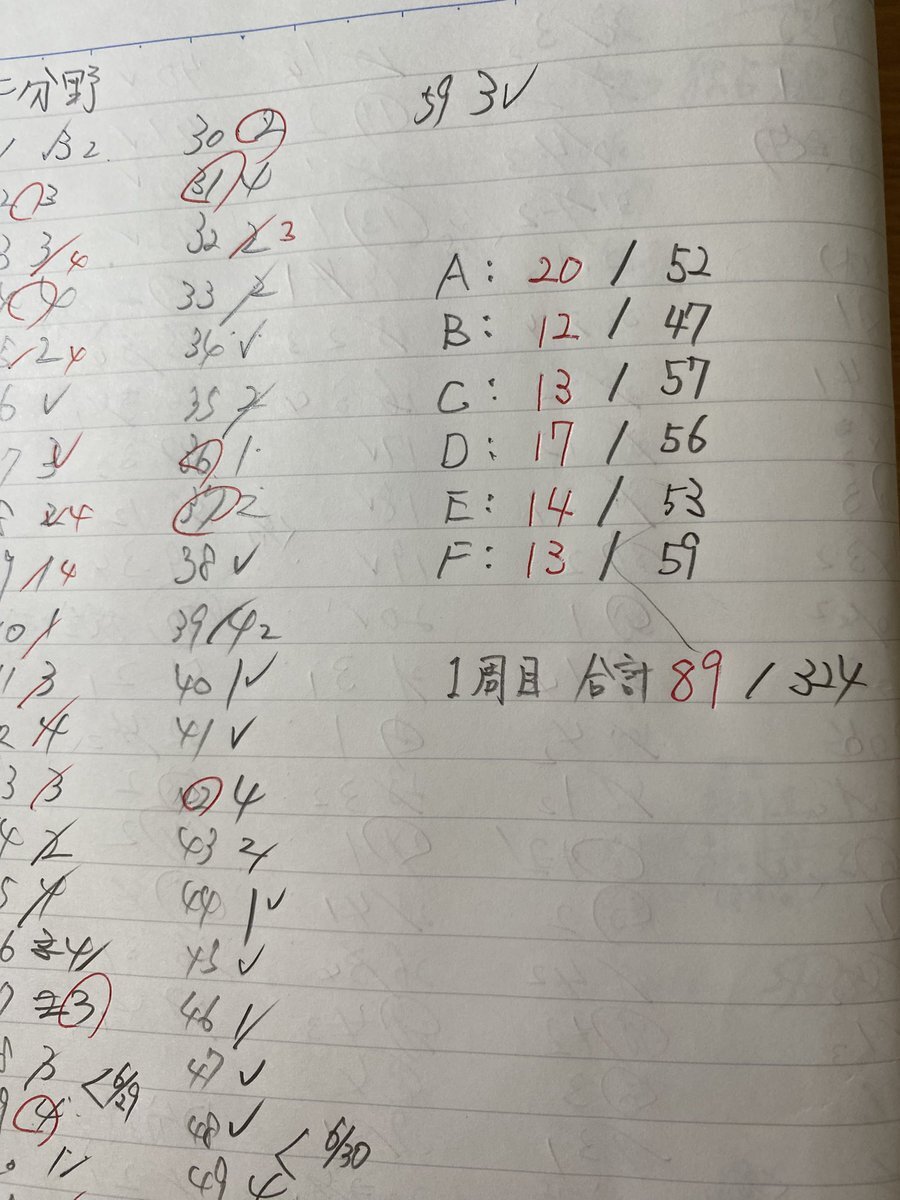 分野
59 3✓
32 30 ②
3 31 4
3 3 4 32 2 3
33 2
2 4 34 ✓
6 ✓ 35 2
7 3 36 1
2 4 37 2
9 1 4 38 ✓
39 1 4 2
3 40 1✓
4 41 ✓
3 3 42 4
4 2 43 2
5 4 44 1✓
6 2 4 1 45 ✓
7 2 3 46 1
3 <6/29 47 ✓
9 4 48 ✓ <6/30
49 4
A: 20 / 52
B: 12 / 47
C: 13 / 57
D: 17 / 56
E: 14 / 53
F: 13 / 59
1周目 合計 89 / 324